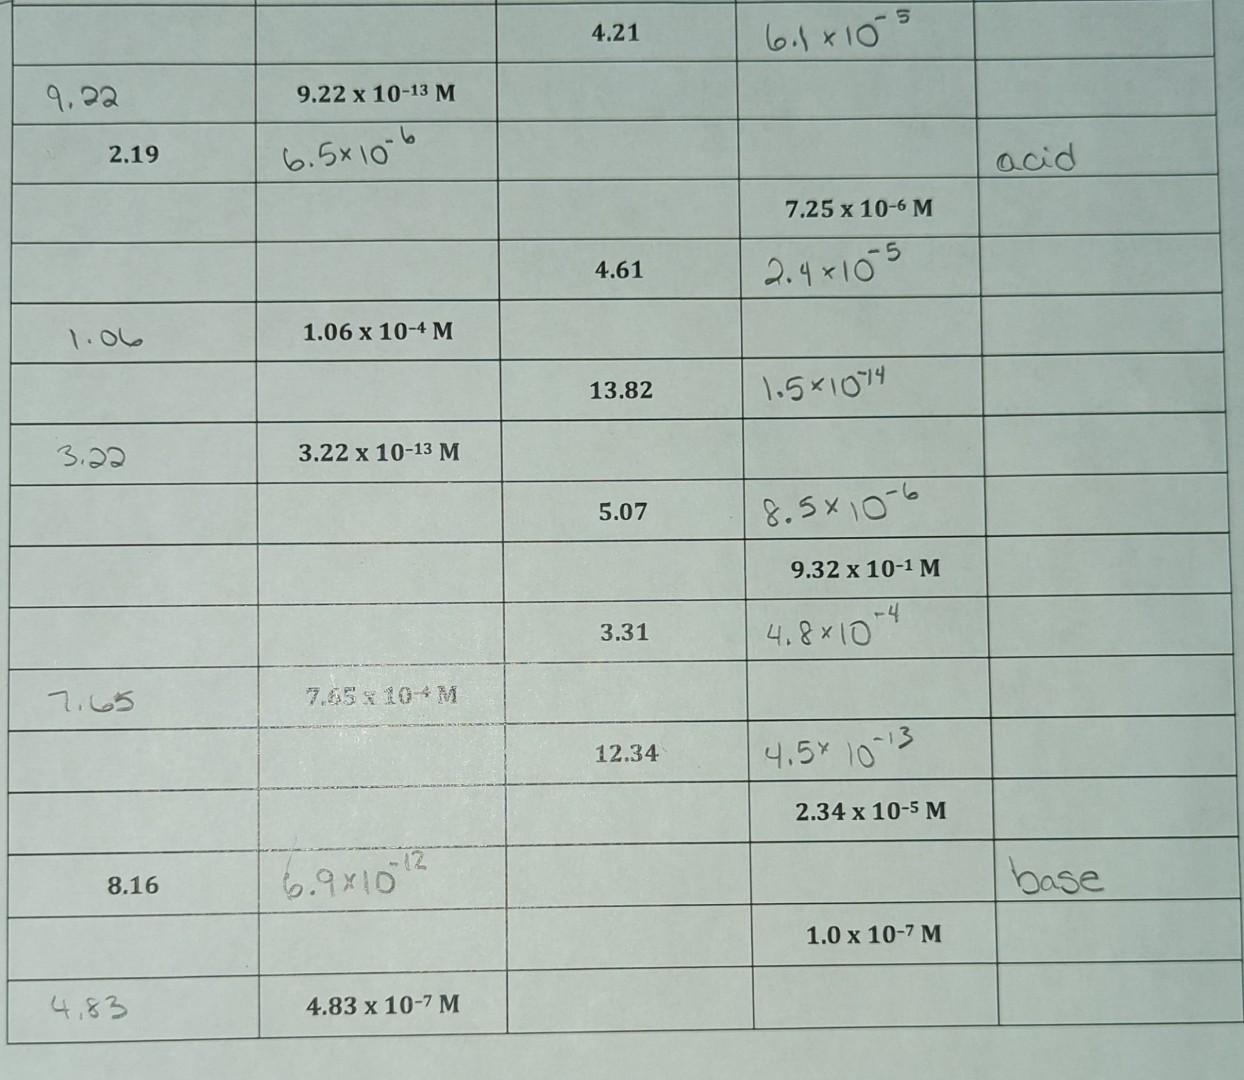 4.21 6.1 x 10⁻⁵
9.22 9.22 x 10⁻¹³ M
2.19 6.5x10⁻⁶ acid
7.25 x 10⁻⁶ M
4.61 2.4 x10⁻⁵
1.06 1.06 x 10⁻⁴ M
13.82 1.5x10⁻¹⁴
3.22 3.22 x 10⁻¹³ M
5.07 8.5x 10⁻⁶
9.32 x 10⁻¹ M
3.31 4.8x10⁻⁴
7.65 7.65 x 10⁻⁴ M
12.34 4.5x 10⁻¹³
2.34 x 10⁻⁵ M
8.16 6.9x10⁻¹² base
1.0 x 10⁻⁷ M
4.83 4.83 x 10⁻⁷ M